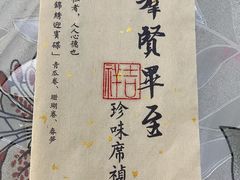 羣賢畢至
吉祥
珍味席禎
者，人人心德也
錦繡迎賓碟」青瓜卷、珊瑚卷、春夢